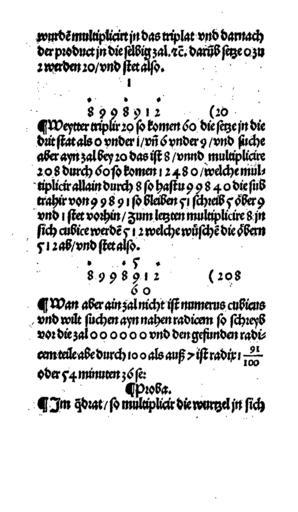 wurdẽ multiplicirt jn das triplat vnd darnach
der product in die selbig zal. ꝛc. darũb setze 0 3u
2 werden 20/vnd stet also.
1
8 9 9 8 9 1 2 (20
¶Weytter triplir 20 so komen 60 die setze in die
drit stat als 0 vnder 1/vñ 6 vnder 9/vnd suche
aber ayn zal bey 20 das ist 8/vnnd multiplicire
208 durch 60 so komen 12480/welche mul⸗
tiplicir allain durch 8 so hastu 99840 die sub
trahir von 99891 so bleiben 51 schreib 5 ober 9
vnd 1 stet vorhin/Zum letzten multiplicire 8 jn
sich cubice werdẽ 512 welche wüschẽ die öbern
512 ab/vnd stet also.
5
8 9 9 8 9 1 2 (208
60
¶Wan aber ain zal nicht ist numerus cubicus
vnd wilt suchen ayn nahen radicem so schreyb
vor die zal 000000 vnd den gefunden radi⸗
cem teile abe durch 100 als auß 7 ist radix 1 91/100
oder 54 minuten 36 se:
¶Proba.
¶Im q̃drat/so multiplicir die wurtzel jn sich